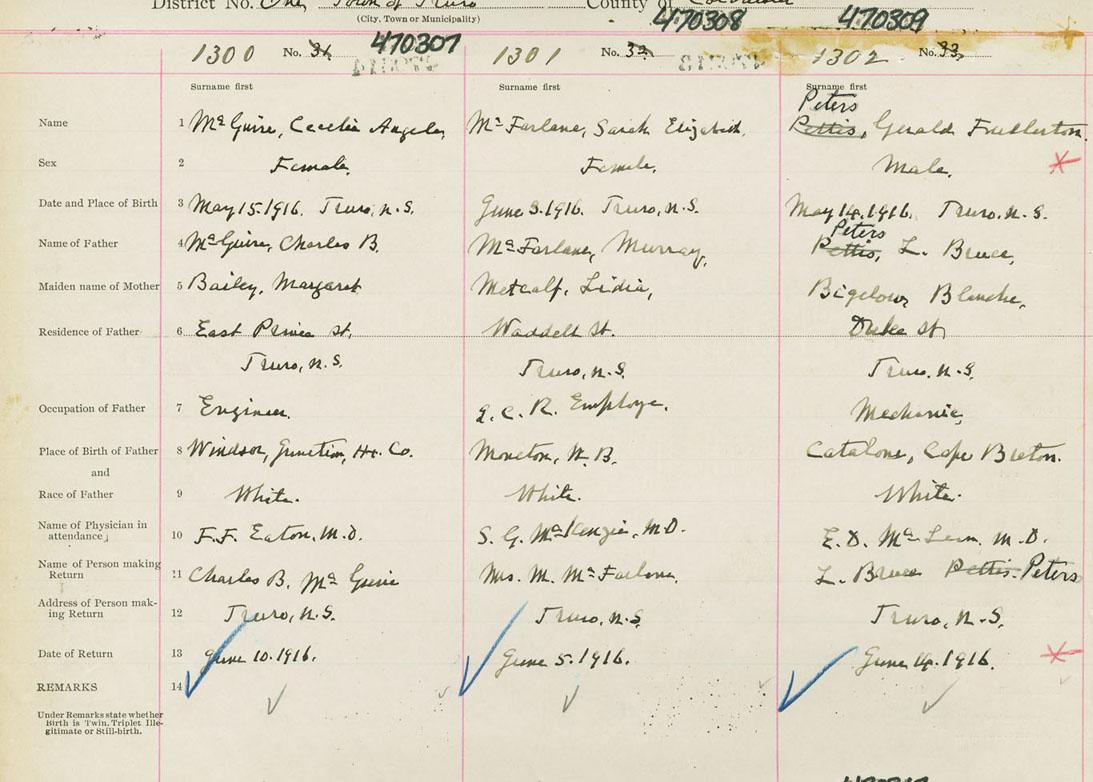 District No. One Town of Truro County of Colchester
(City, Town or Municipality)
470307 470308 470309
1300 No. 31 1301 No. 32 1302 No. 33
Surname first Surname first Surname first
Peters
Name 1 McGuire, Cecelia Angela, McFarlane, Sarah Elizabeth. Pettis, Gerald
Sex 2 Female. Female. Male.
Date and Place of Birth 3 May 15.1916. Truro, N.S. June 3.1916. Truro, N.S. May 14.1916. Truro. N.S.
Peters
Name of Father 4 McGuire, Charles B. McFarlane, Murray, Pettis, L. Bruce,
Maiden name of Mother 5 Bailey, Margaret Metcalf, Lidia, Bigelow, Blanche,
Residence of Father 6 East Prince st, Waddell st. Duke st,
Truro, N.S. Truro, N.S. Truro. N.S,
Occupation of Father 7 Engineer. I.C.R. Employe. Mechanic,
Place of Birth of Father 8 Windsor, Junction, Hx. Co. Moncton, N.B. Catalone, Cape Breton.
and
Race of Father 9 White. White. White.
Name of Physician in
attendance 10 F.F. Eaton, M.D. S.G. McKenzie, M.D. E.D. McLean, M.D.
Name of Person making
Return 11 Charles B. McGuire Mrs. M. McFarlane. L. Bruce Pettis. Peters
Address of Person mak-
ing Return 12 Truro, N.S. Truro, N.S, Truro, N.S,
Date of Return 13 June 10.1916. June 5.1916. June 14.1916.
REMARKS 14
Under Remarks state whether
Birth is Twin, Triplet Ille-
gitimate or Still-birth.